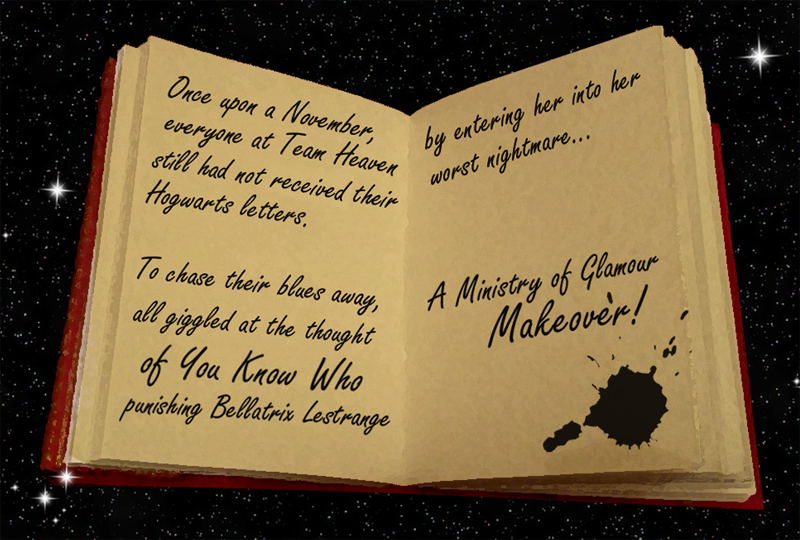 Once upon a November,
everyone at Team Heaven
still had not received their
Hogwarts letters.
To chase their blues away,
all giggled at the thought
of You Know Who
punishing Bellatrix Lestrange
by entering her into her
worst nightmare...
A Ministry of Glamour
Makeover!